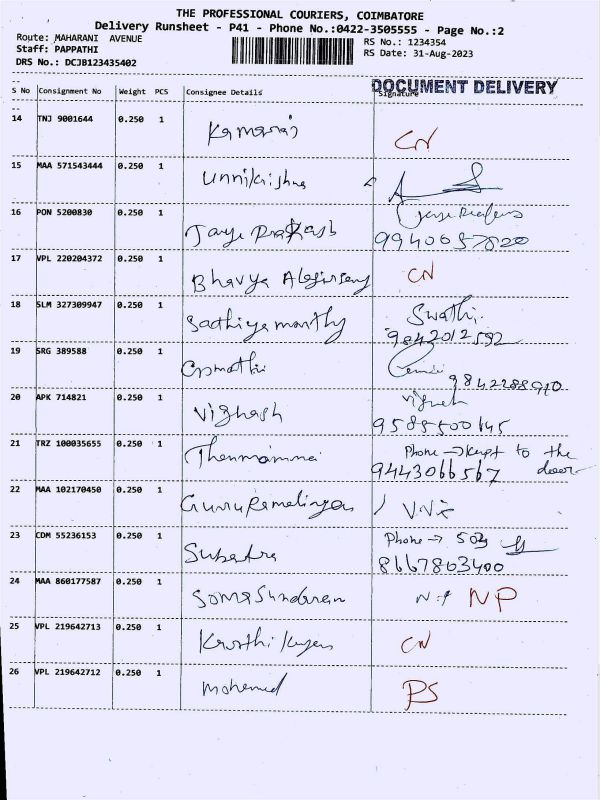 THE PROFESSIONAL COURIERS, COIMBATORE
Delivery Runsheet - P41 - Phone No.:0422-3505555 - Page No.:2
Route: MAHARANI AVENUE
Staff: PAPPATHI
DRS No.: DCJB123435402
RS No.: 1234354
RS Date: 31-Aug-2023
S No Consignment No Weight PCS Consignee Details Signature
DOCUMENT DELIVERY
14 TNJ 9001644 0.250 1 Kamaraj CN
15 MAA 571543444 0.250 1 Unnikrishna
16 PON 5200830 0.250 1 Jaya Prakash
9940057820
17 VPL 220204372 0.250 1 Bhavya CN
18 SLM 327309947 0.250 1 Sathiyamoorthy Swathi.
9842012592
19 SRG 389588 0.250 1 Gomathi
9842288910
20 APK 714821 0.250 1 Vighash Vignesh
9585500145
21 TRZ 100035655 0.250 1 Phone → kept to the
9443066567 door
22 MAA 102170450 0.250 1
23 CDM 55236153 0.250 1 Subatra Phone →
8667803400
24 MAA 860177587 0.250 1 Somasundaram NP
25 VPL 219642713 0.250 1 CN
26 VPL 219642712 0.250 1 Mohamed PS